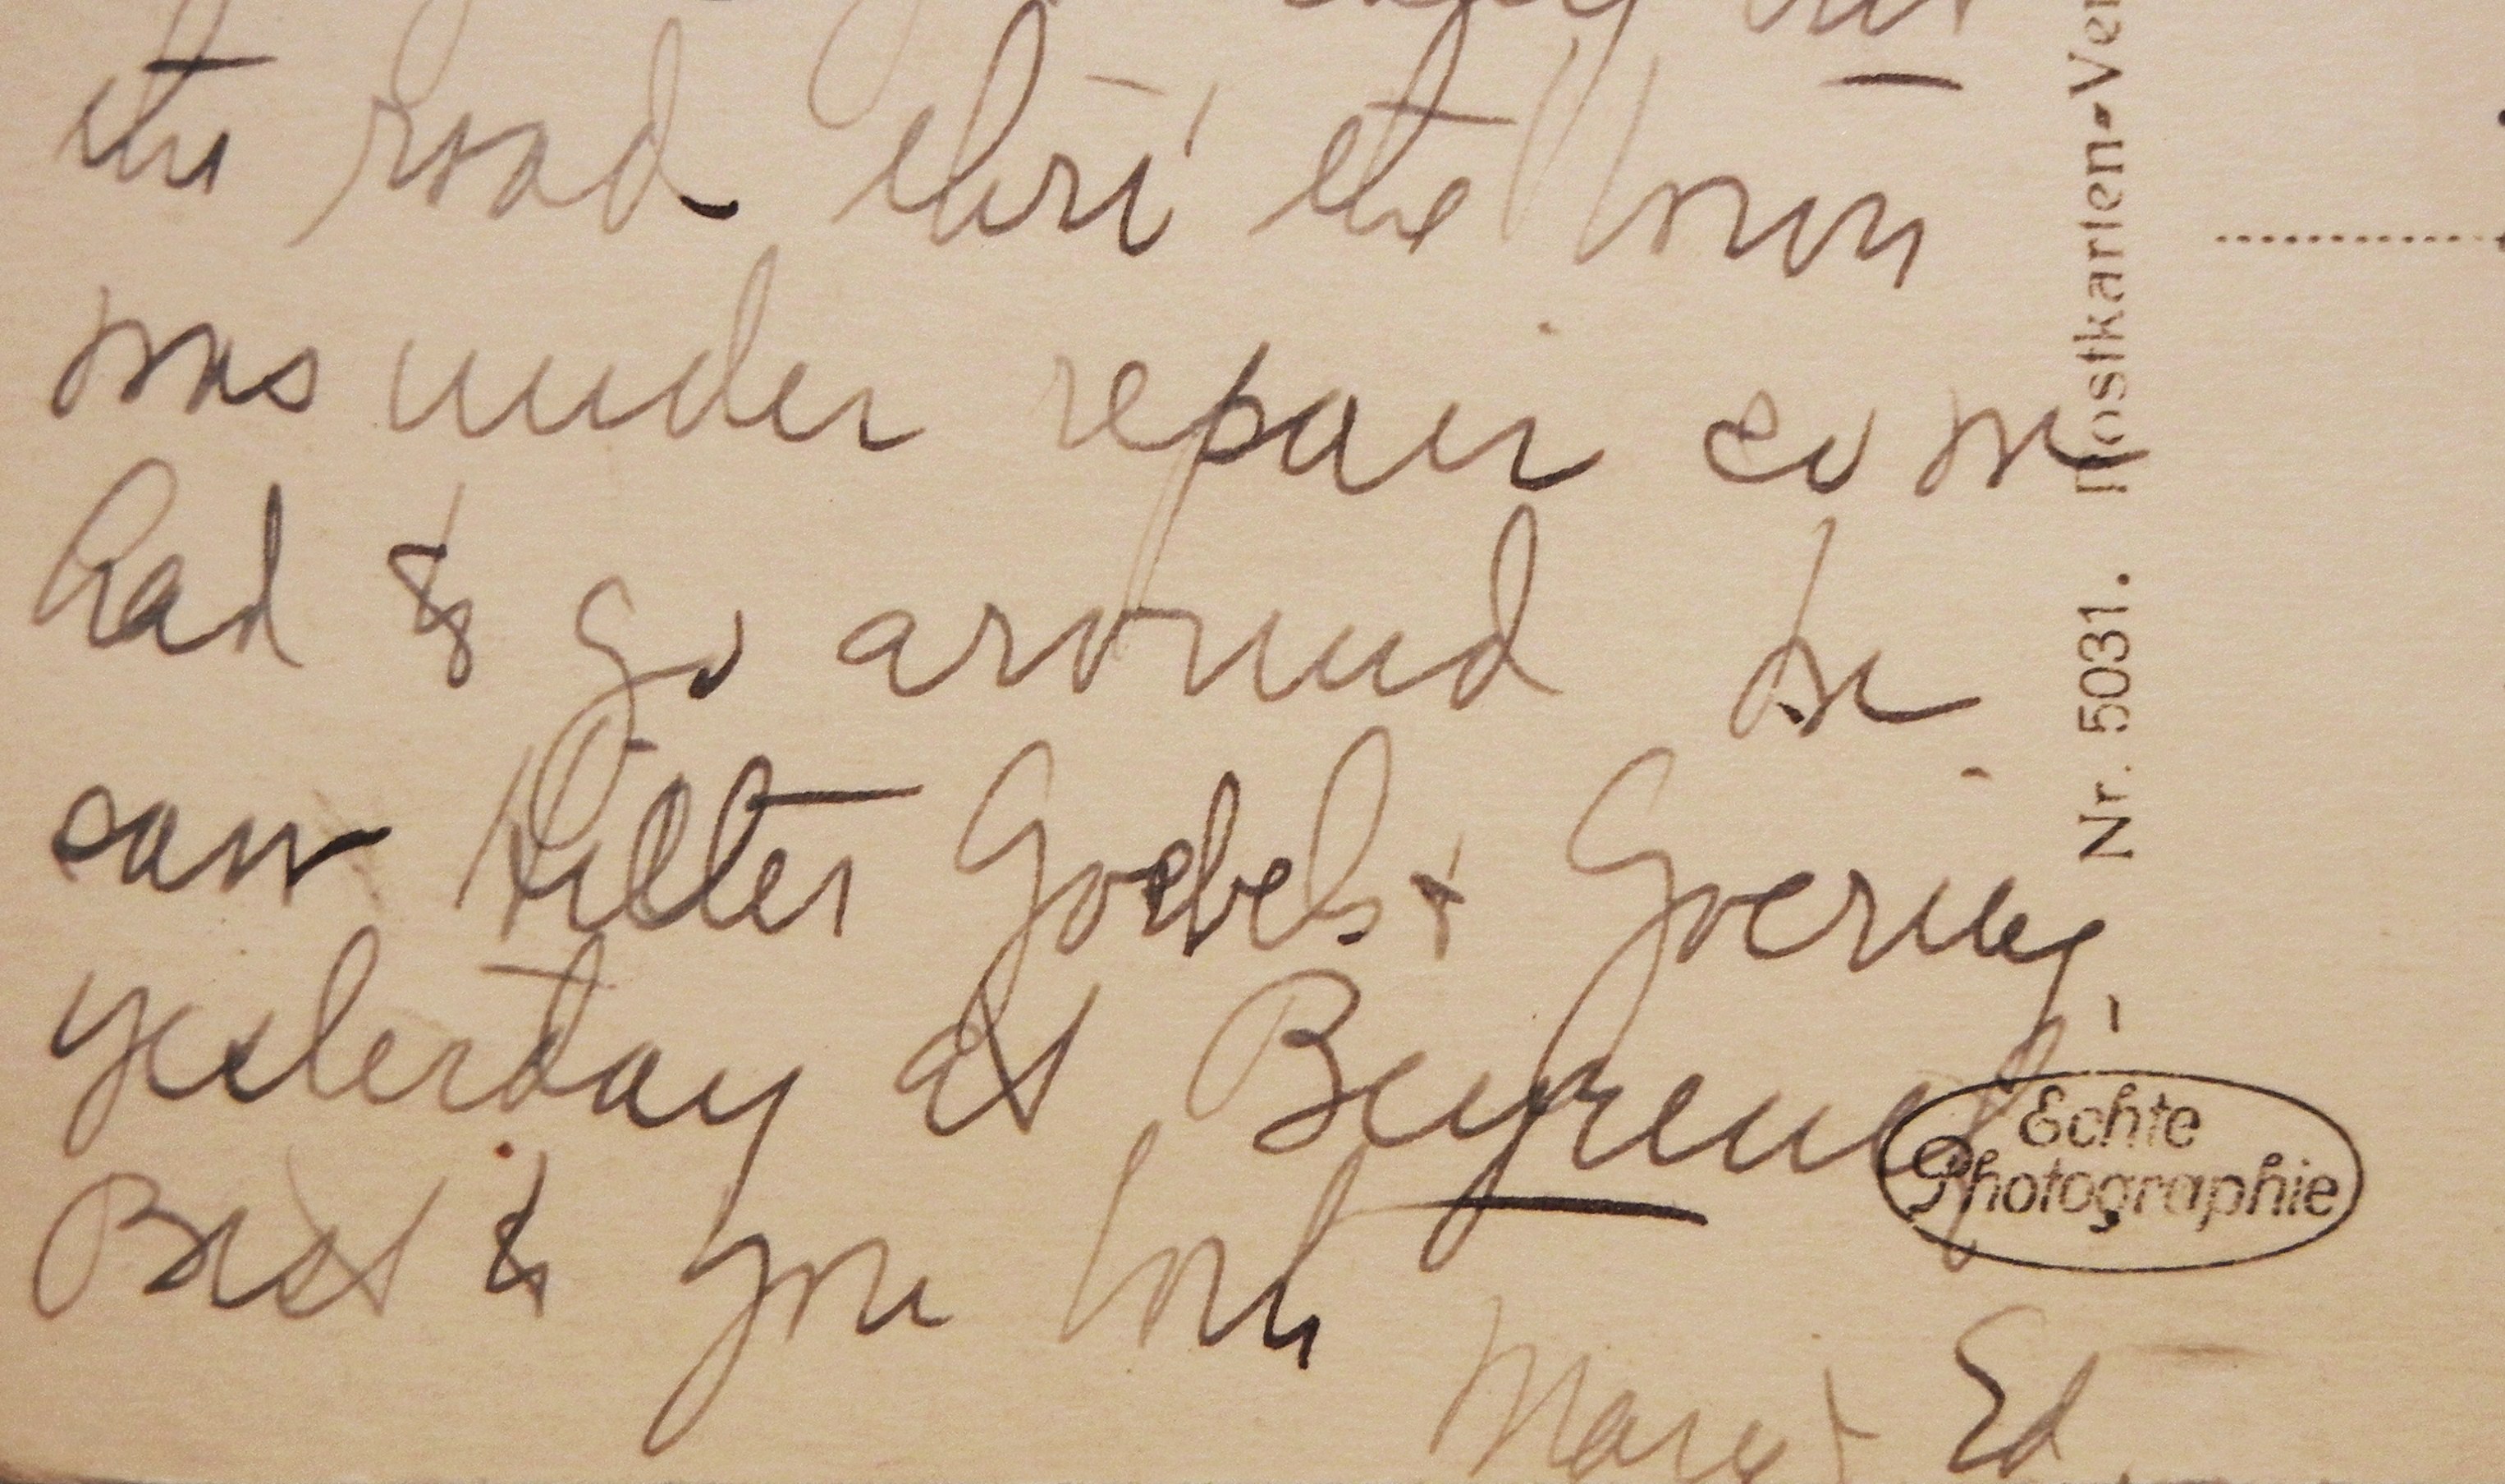 enjoy but
the road thru' the town
was under repair so we
had to go around We
saw Hitler Goebels + Goering
yesterday at Beyreuth -
Best to you both
Mary + Ed
Postkarten-Ver
Nr. 5031.
Echte
Photographie